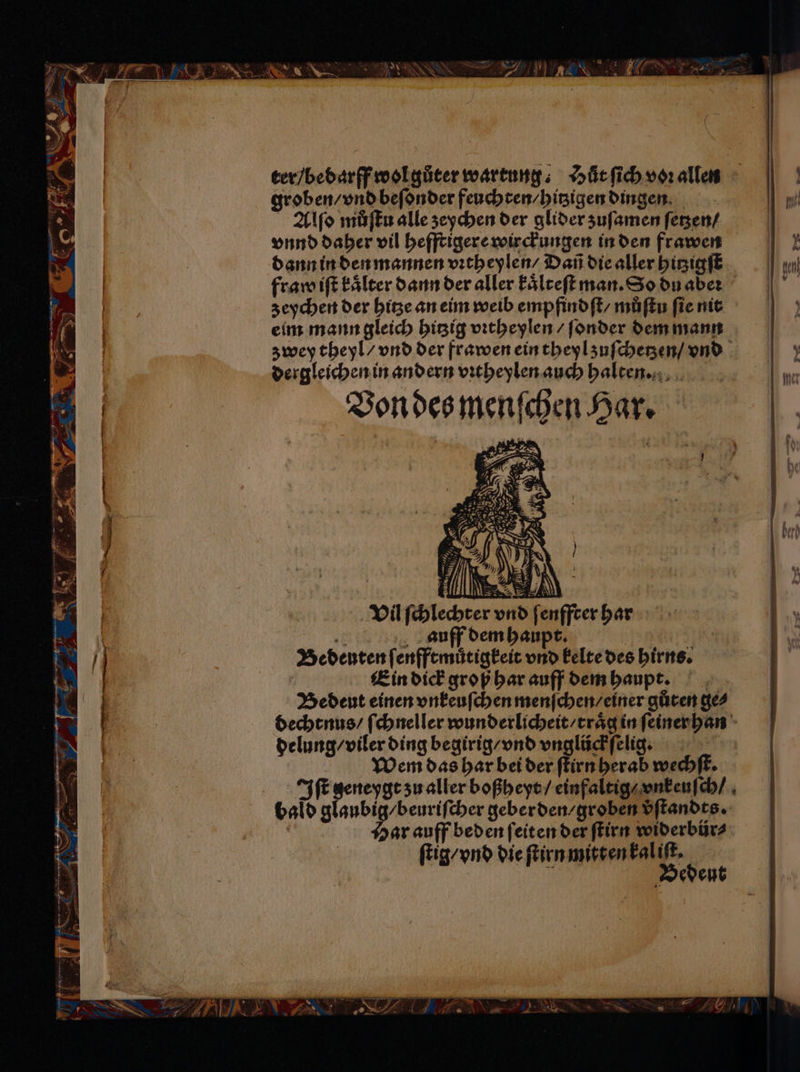 ter/bedarff wol gůter wartung. Hůt ſich voꝛ allen
groben/vnd beſonder feuchten/hitzigen dingen.
Alſo můſtu alle zeychen der glider zuſamen ſetzen/
vnnd daher vil hefftigere wirckungen in den frawen
dann in den mannen vꝛtheylen/ Dañ die aller hitzigſt
fraw iſt kaͤlter dann der aller kaͤlteſt man. So du abeꝛ
zeychen der hitze an eim weib empfindſt/ můſtu ſie nit
eim mann gleich hitzig vꝛtheylen / ſonder dem mann
zwey theyl/ vnd der frawen ein theyl zuſchetzen/ vnd
dergleichen in andern vꝛtheylen auch halten.
Von des menſchen Har.
Vil ſchlechter vnd ſenffter har
auff dem haupt.
Bedeuten ſenfftmuͤtigkeit vnd kelte des hirns.
Ein dick groß har auff dem haupt.
Bedeut einen vnkeuſchen menſchen/einer gůten ge⸗
dechtnus/ ſchneller wunderlicheit/traͤg in ſeiner han
delung/viler ding begirig/vnd vnglückſelig.
Wem das har bei der ſtirn herab wechſt.
Iſt geneygt zu aller boßheyt / einfaltig/vnkeuſch/
bald glaubig/beuriſcher geberden/groben v̊ſtandts.
Har auff beden ſeiten der ſtirn widerbür⸗
ſtig/vnd die ſtirn mitten kal iſt.
Bedeut